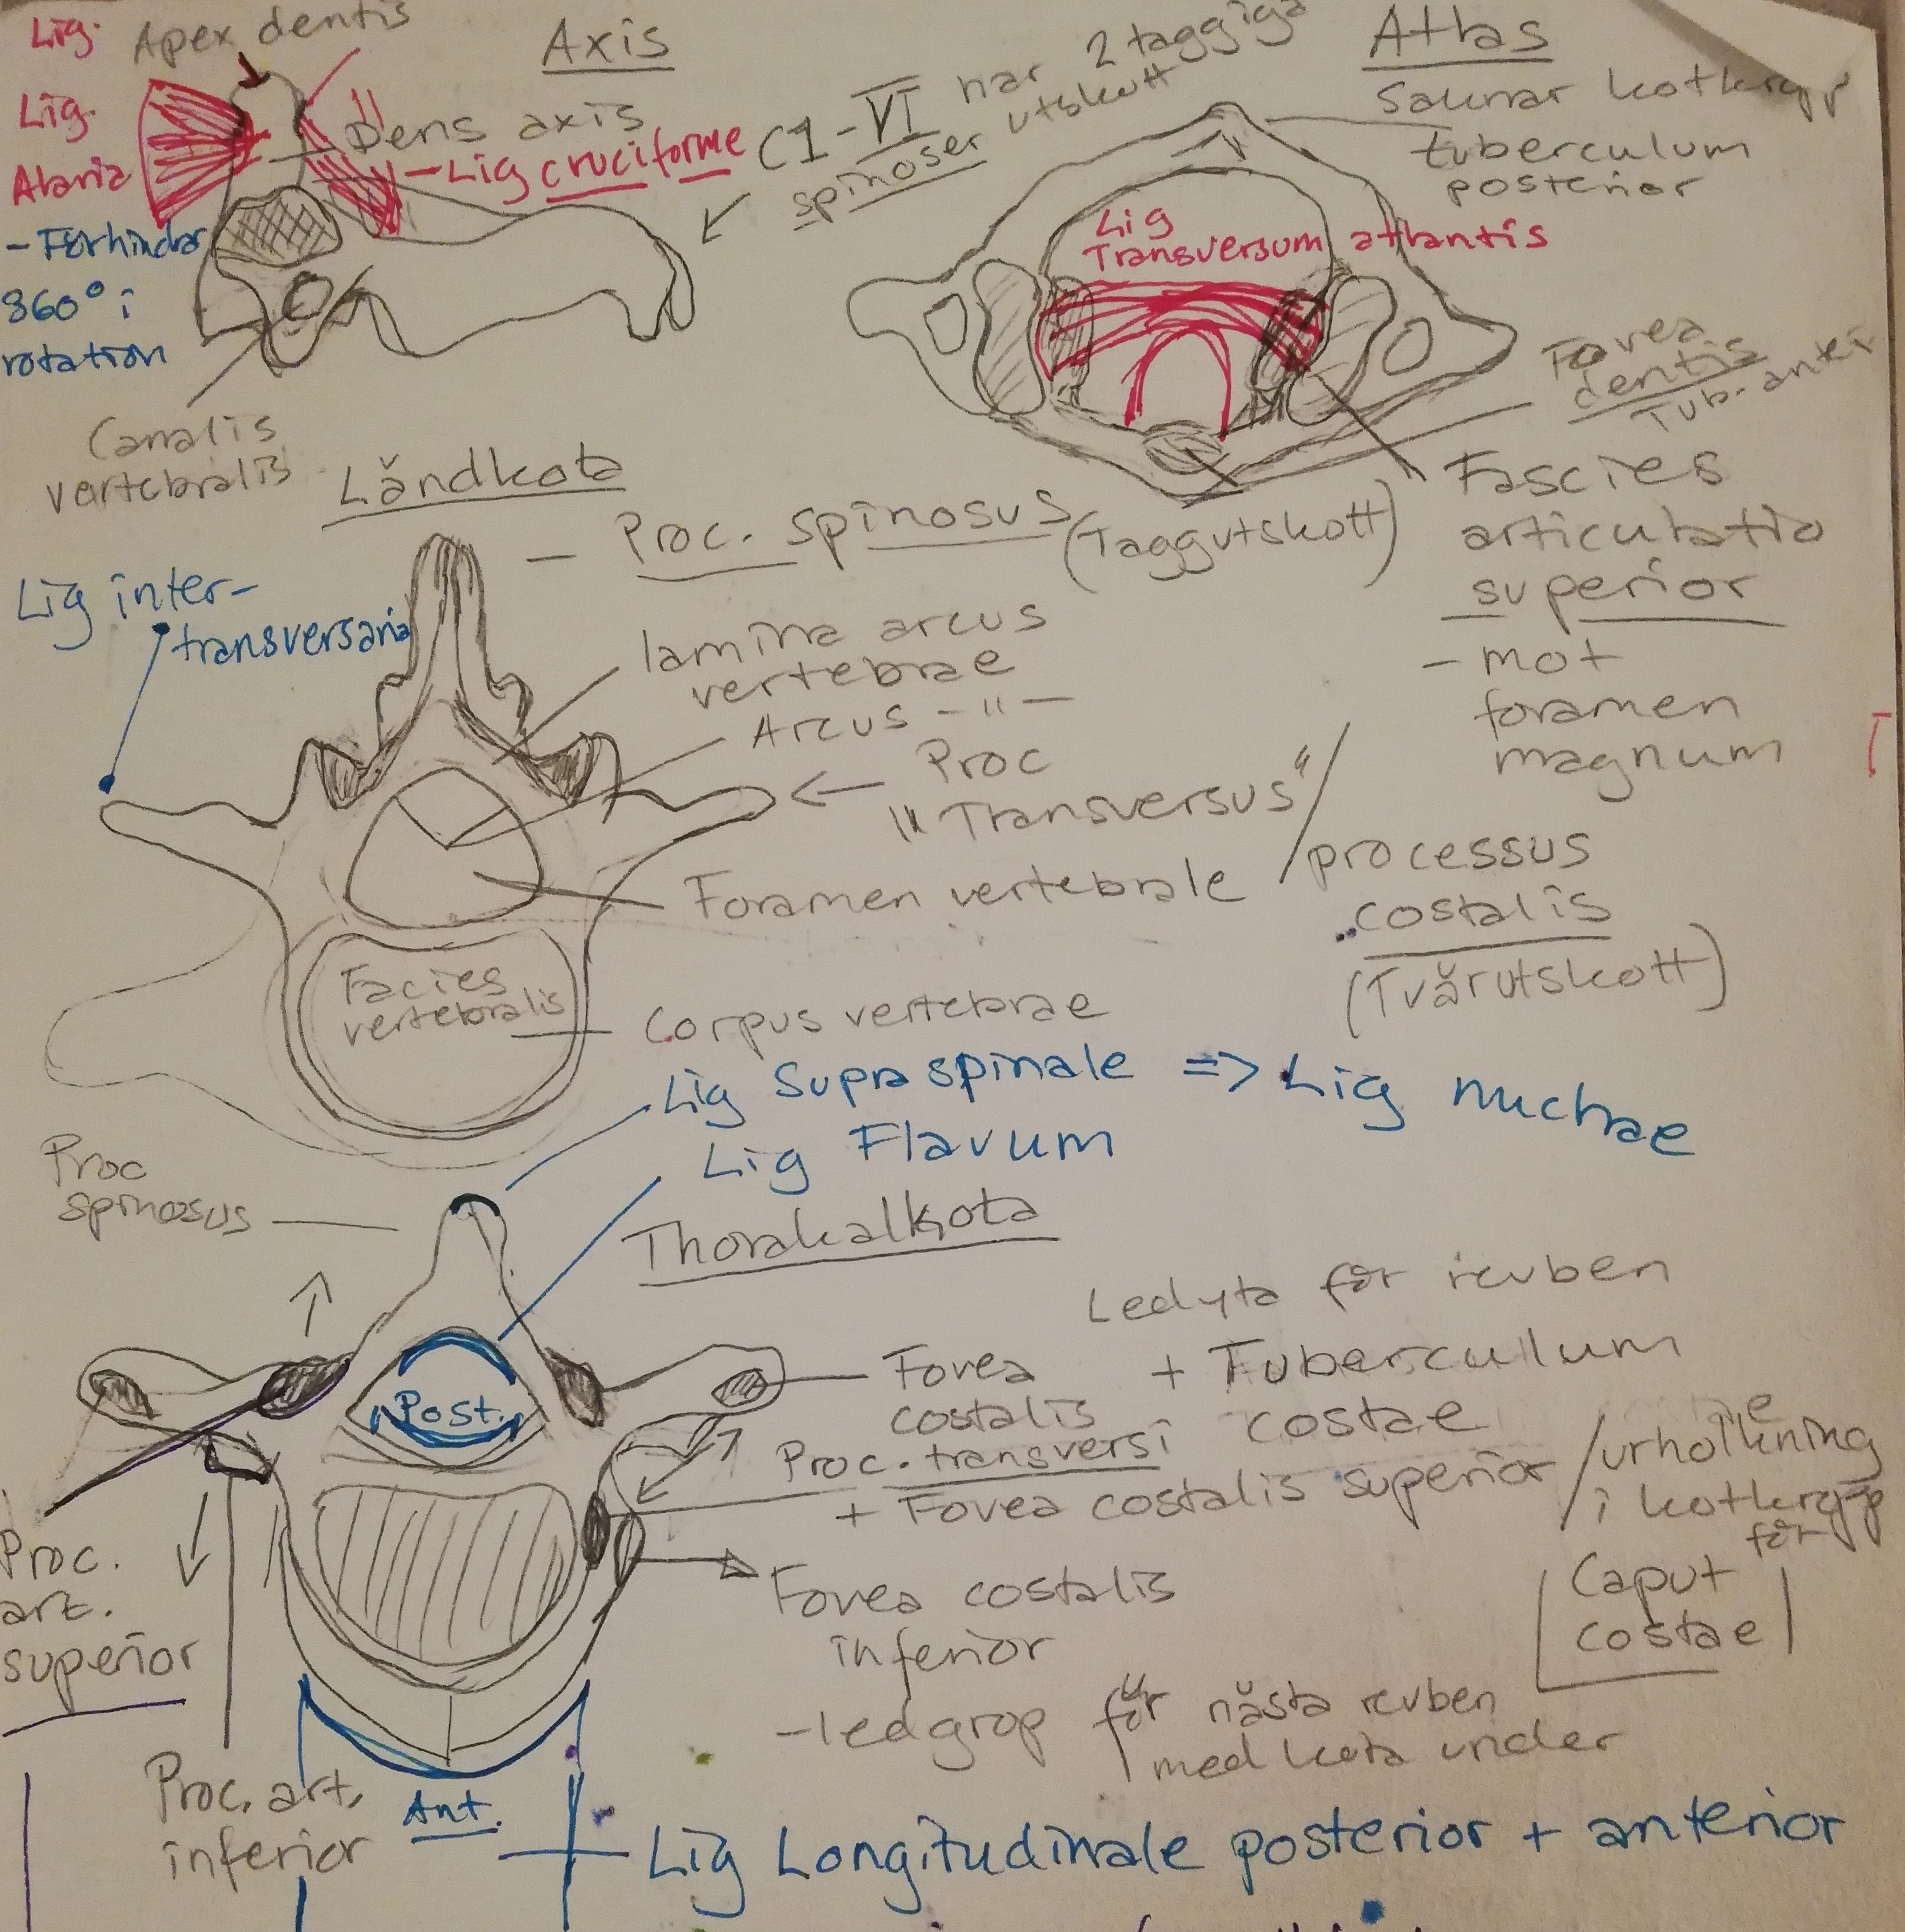 Lig. Apex dentis
Axis
Lig.
Alaria
- Förhindar
360° i
rotation
Dens axis
- Lig cruciforme
Canalis
vertebralis
C1-VI har 2 taggiga
spinoser utskott
Atlas
Saknar kotkropp
tuberculum
posterior
Lig
Transversum atlantis
Fovea
dentis
Tub. anter
Fascies
articulatio
superior
- mot
foramen
magnum
Ländkota
- Proc. spinosus (Taggutskott)
Lig inter-
transversaria
lamina arcus
vertebrae
Arcus - " -
Proc
"Transversus" /
/ processus
costalis
(Tvärutskott)
Foramen vertebrale
Facies
vertebralis
Corpus vertebrae
Lig Supraspinale => Lig nuchae
Lig Flavum
Proc
spinosus
Thorakalkota
Ledyta för revben
Fovea + Tuberculum
costalis costae
Proc. transversi
+ Fovea costalis superior / urholkning
i kotkropp
för
Caput
costae
Post.
Proc.
art.
superior
Fovea costalis
inferior
- ledgrop för nästa revben
med kota under
Proc. art.
inferior
Ant.
Lig Longitudinale posterior + anterior